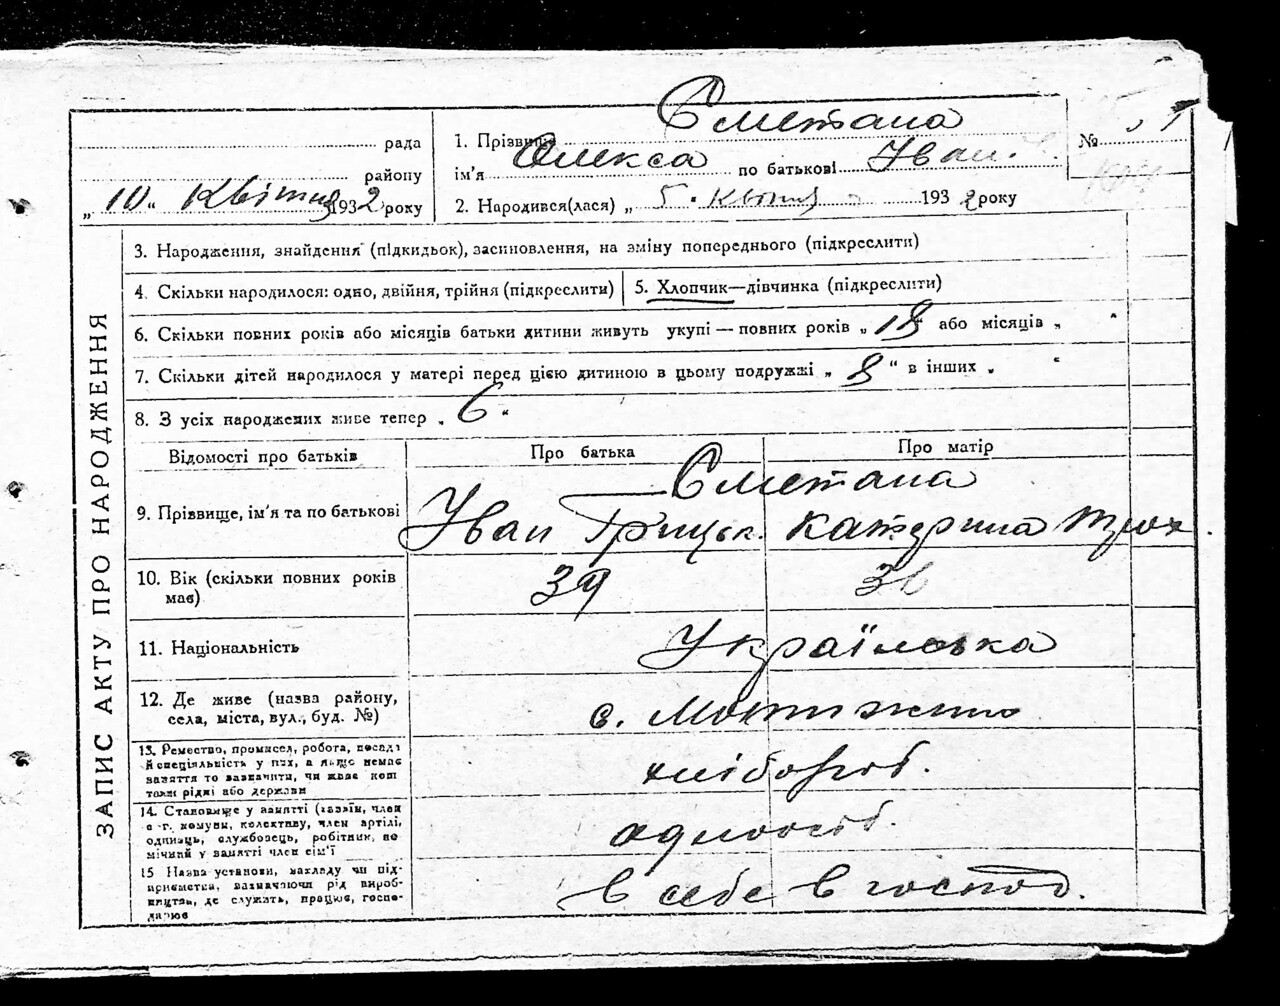 Сметана
рада
1. Прізвище
№ 51
Олекса
Іван.
району
ім'я по батькові
„10“ Квітня 1932 року
2. Народився(лася) „5. Квітня 1932 року
3. Народження, знайдення (підкидьок), засиновлення, на зміну попереднього (підкреслити)
4. Скільки народилося: одно, двійня, трійня (підкреслити)
5. Хлопчик—дівчинка (підкреслити)
6. Скільки повних років або місяців батьки дитини живуть укупі — повних років „18“ або місяців „ “
7. Скільки дітей народилося у матері перед цією дитиною в цьому подружжі „8“ в інших „ “
8. З усіх народжених живе тепер „6“
ЗАПИС АКТУ ПРО НАРОДЖЕННЯ
Відомості про батьків
Про батька
Про матір
Сметана
9. Прізвище, ім'я та по батькові
Іван Грицьк. Катерина Трох.
10. Вік (скільки повних років
має)
39
36
11. Національність
Українська
12. Де живе (назва району,
села, міста, вул., буд. №)
с. Мотижин
13. Ремество, промисел, робота, посада
й спеціяльність у них, а якщо немає
заняття то зазначити, чи живе кош
тами рідні або держави
хлібороб.
14. Становище у занятті (хазяїн, член
с.-г. комуни, колективу, член артілі,
одинець, службовець, робітник, по
мічний у занятті член сім'ї
одноосіб.
15 Назва установи, закладу чи під-
приємства, зазначаючи рід вироб-
ництва, де служить, працює, госпо-
дарює
в себе в господ.